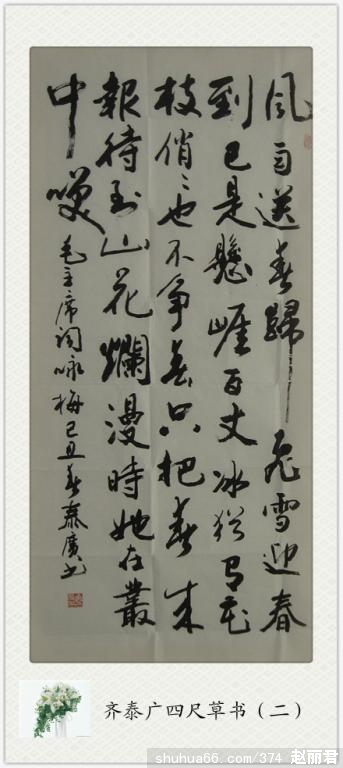 風雨送春歸飛雪迎春
到已是懸崖百丈冰猶有花
枝俏〻也不爭春只把春來
報待到山花爛漫時她在叢
中咲
毛主席词咏梅己丑春泰廣书
齐泰广四尺草书（二）
shuhua66.com/374 赵丽君